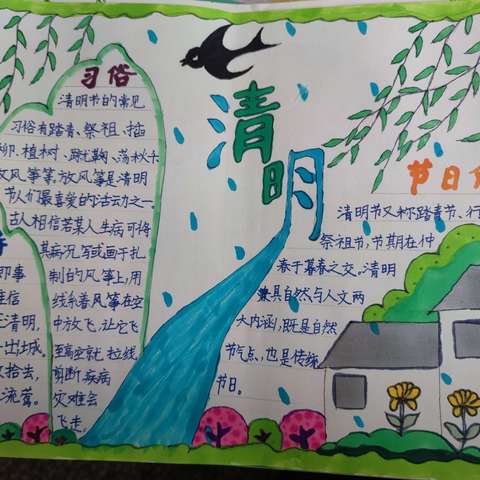 清明
习俗
清明节的常见
习俗有踏青、祭祖、插
柳、植树、蹴鞠、荡秋千
放风筝等,放风筝是清明
节人们最喜爱的活动之一
古人相信若某人生病可将
其病况写或画于扎
制的风筝上,用
线系着风筝在空
中放飞,让它飞
至高空就拉线,
剪断疾病
灾难会
飞走。
即事
信
清明,
出城。
拾去,
流莺。
节日
清明节又称踏青节、行
祭祖节,节期在仲
春于暮春之交。清明
兼具自然与人文两
大内涵,既是自然
节气点,也是传统
节日。